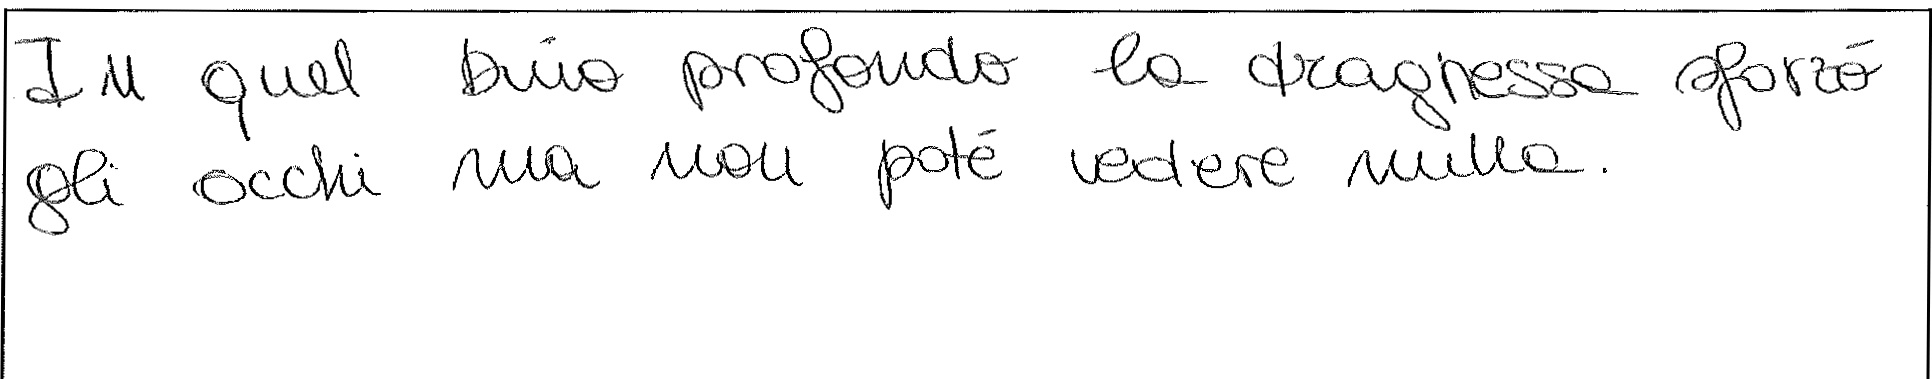 In quel buio profondo la dragnessa sforzò
gli occhi ma non poté vedere nulla.